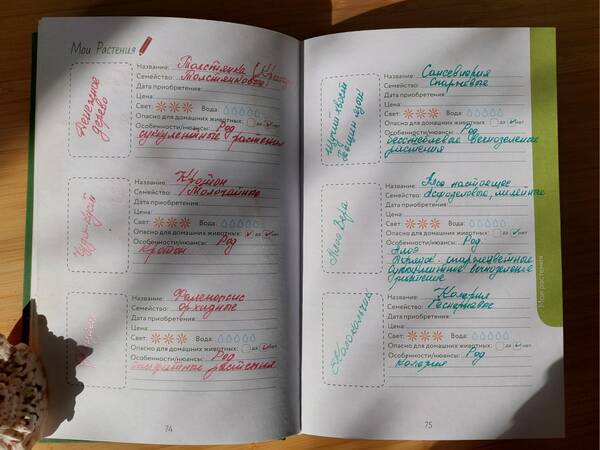 Мои Растения
Денежное
дерево
Название: Толстянка
Семейство: Толстянковые
Дата приобретения:
Цена:
Свет: Вода:
Опасно для домашних животных: да нет
Особенности/нюансы: Род
суккулентных растения
Название: Кротон
Семейство: Молочайные
Дата приобретения:
Цена:
Свет: Вода:
Опасно для домашних животных: да нет
Особенности/нюансы: Род
Кротон
Название: Фаленопсис
Семейство: орхидные
Дата приобретения:
Цена:
Свет: Вода:
Опасно для домашних животных: да нет
Особенности/нюансы: Род
растения
74
Название: Сансевиерия
Семейство: Спаржевые
Дата приобретения:
Цена:
Свет: Вода:
Опасно для домашних животных: да нет
Особенности/нюансы: Род
бесстеблевые вечнозеленые
растения
Алоэ Вера
Название: Алоэ настоящее
Семейство: Асфоделовые,
Дата приобретения:
Цена:
Свет: Вода:
Опасно для домашних животных: да нет
Особенности/нюансы: Род
Алоэ
Порядок-спаржецветные
Суккулентное
растение
Колокольчик
Название: Колерия
Семейство: Геснериевое
Дата приобретения:
Цена:
Свет: Вода:
Опасно для домашних животных: да нет
Особенности/нюансы: Род
колерия
75
Мои растения